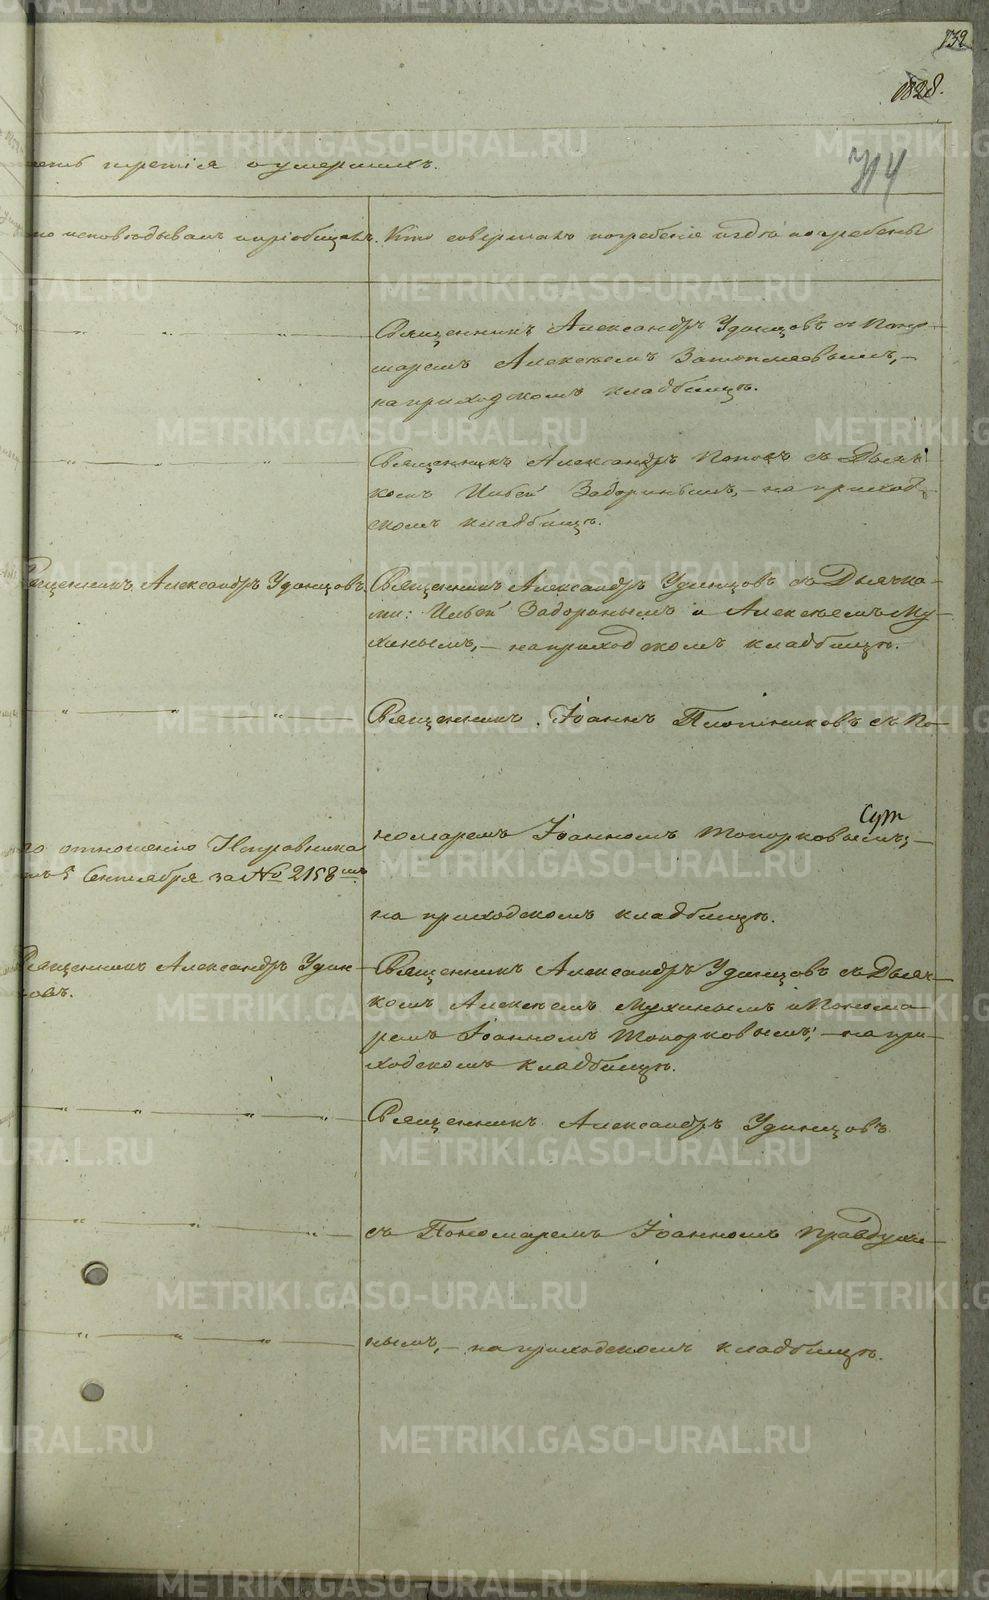 132
1828.
часть третія о умершихъ.
314
Кто исповѣдывалъ и пріобщалъ.
Кто совершалъ погребеніе и гдѣ погребены
Священникъ Александръ Удинцовъ съ Поно-
маремъ Алексѣемъ
на приходскомъ кладбищѣ.
Священникъ Александръ Поповъ съ Дьяч-
комъ Ильей Задоринымъ, – на приход-
скомъ кладбищѣ.
Священникъ Александръ Удинцовъ.
Священникъ Александръ Удинцовъ съ Дьячка-
ми: Ильей Задоринымъ и Алексѣемъ Му-
хинымъ, – на приходскомъ кладбищѣ.
Священникъ Іоаннъ Плотниковъ съ По-
номаремъ Іоанномъ Топорковымъ, –
по отношенію Исправника
5 Сентября за № 2158
на приходскомъ кладбищѣ.
Священникъ Александръ Удин-
цовъ.
Священникъ Александръ Удинцовъ съ Дьяч-
комъ Алексѣемъ Мухинымъ и Понома-
ремъ Іоанномъ Топорковымъ; – на при-
ходскомъ кладбищѣ.
Священникъ Александръ Удинцовъ
съ Пономаремъ Іоанномъ Правдухи-
нымъ, – на приходскомъ кладбищѣ.
METRIKI.GASO-URAL.RU